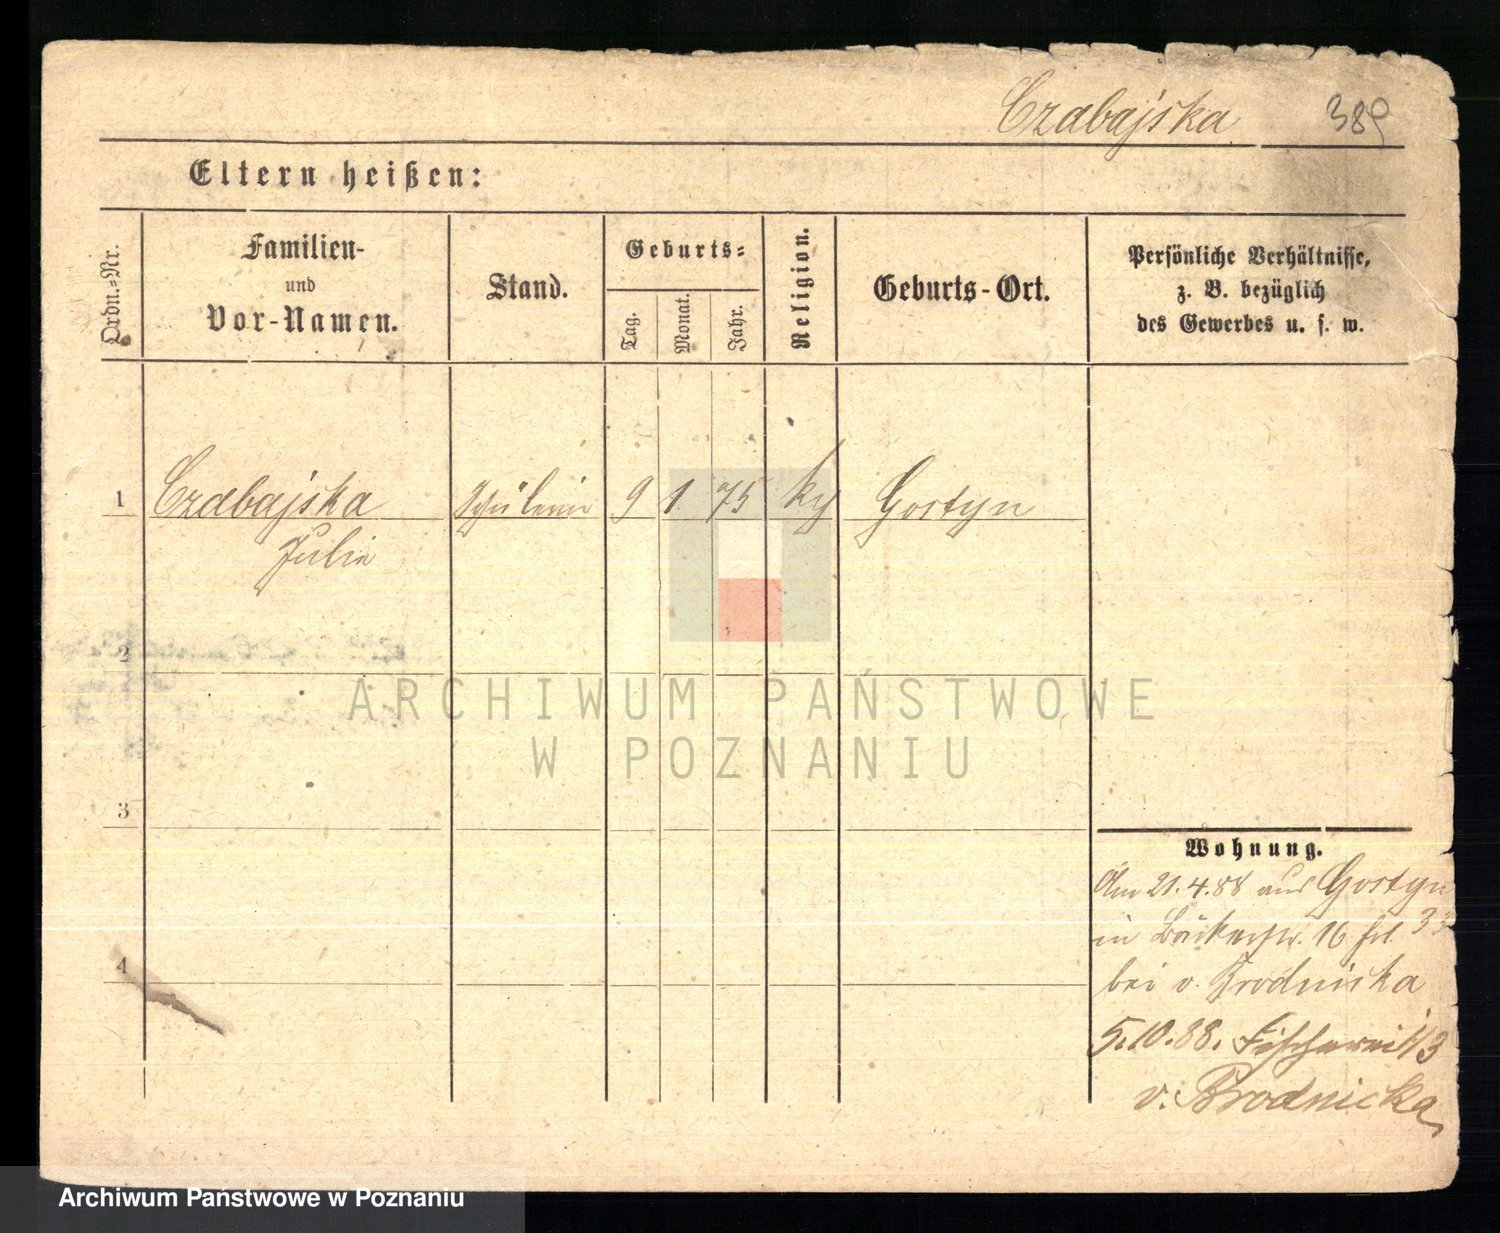 Czabajska 389
Eltern heißen:
Ordn.=Nr.
Familien-
und
Vor-Namen.
Stand.
Geburts=
Tag.
Monat.
Jahr.
Religion.
Geburts-Ort.
Persönliche Verhältnisse,
z. B. bezüglich
des Gewerbes u. s. w.
1 Czabajska Schülerin 9 1. 75 Gostyn
Julie
2
ARCHIWUM PAŃSTWOWE
W POZNANIU
3
Wohnung.
Am 21.4.88 aus Gostyn
in Bäckerstr. 16 33
4
bei v. Brodniska
5.10.88. Fischerei 13
v. Brodnicka
Archiwum Państwowe w Poznaniu